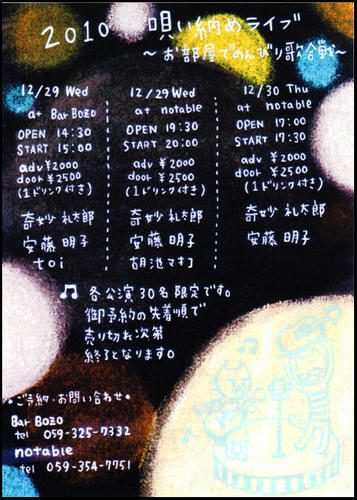 2010 唄い納めライブ
～お部屋でのんびり歌合戦～
12/29 Wed
at Bar Bozo
OPEN 14:30
START 15:00
adv ¥2000
door ¥2500
(1ドリンク付き)
奇妙礼太郎
安藤明子
toi
12/29 Wed
at notable
OPEN 19:30
START 20:00
adv ¥2000
door ¥2500
(1ドリンク付き)
奇妙礼太郎
安藤明子
胡池マキコ
12/30 Thu
at notable
OPEN 17:00
START 17:30
adv ¥2000
door ¥2500
(1ドリンク付き)
奇妙礼太郎
安藤明子
各公演30名限定です。
御予約の先着順で
売り切れ次第
終了となります。
・ご予約・お問い合わせ・
Bar Bozo
tel 059-325-7332
notable
tel 059-354-7751